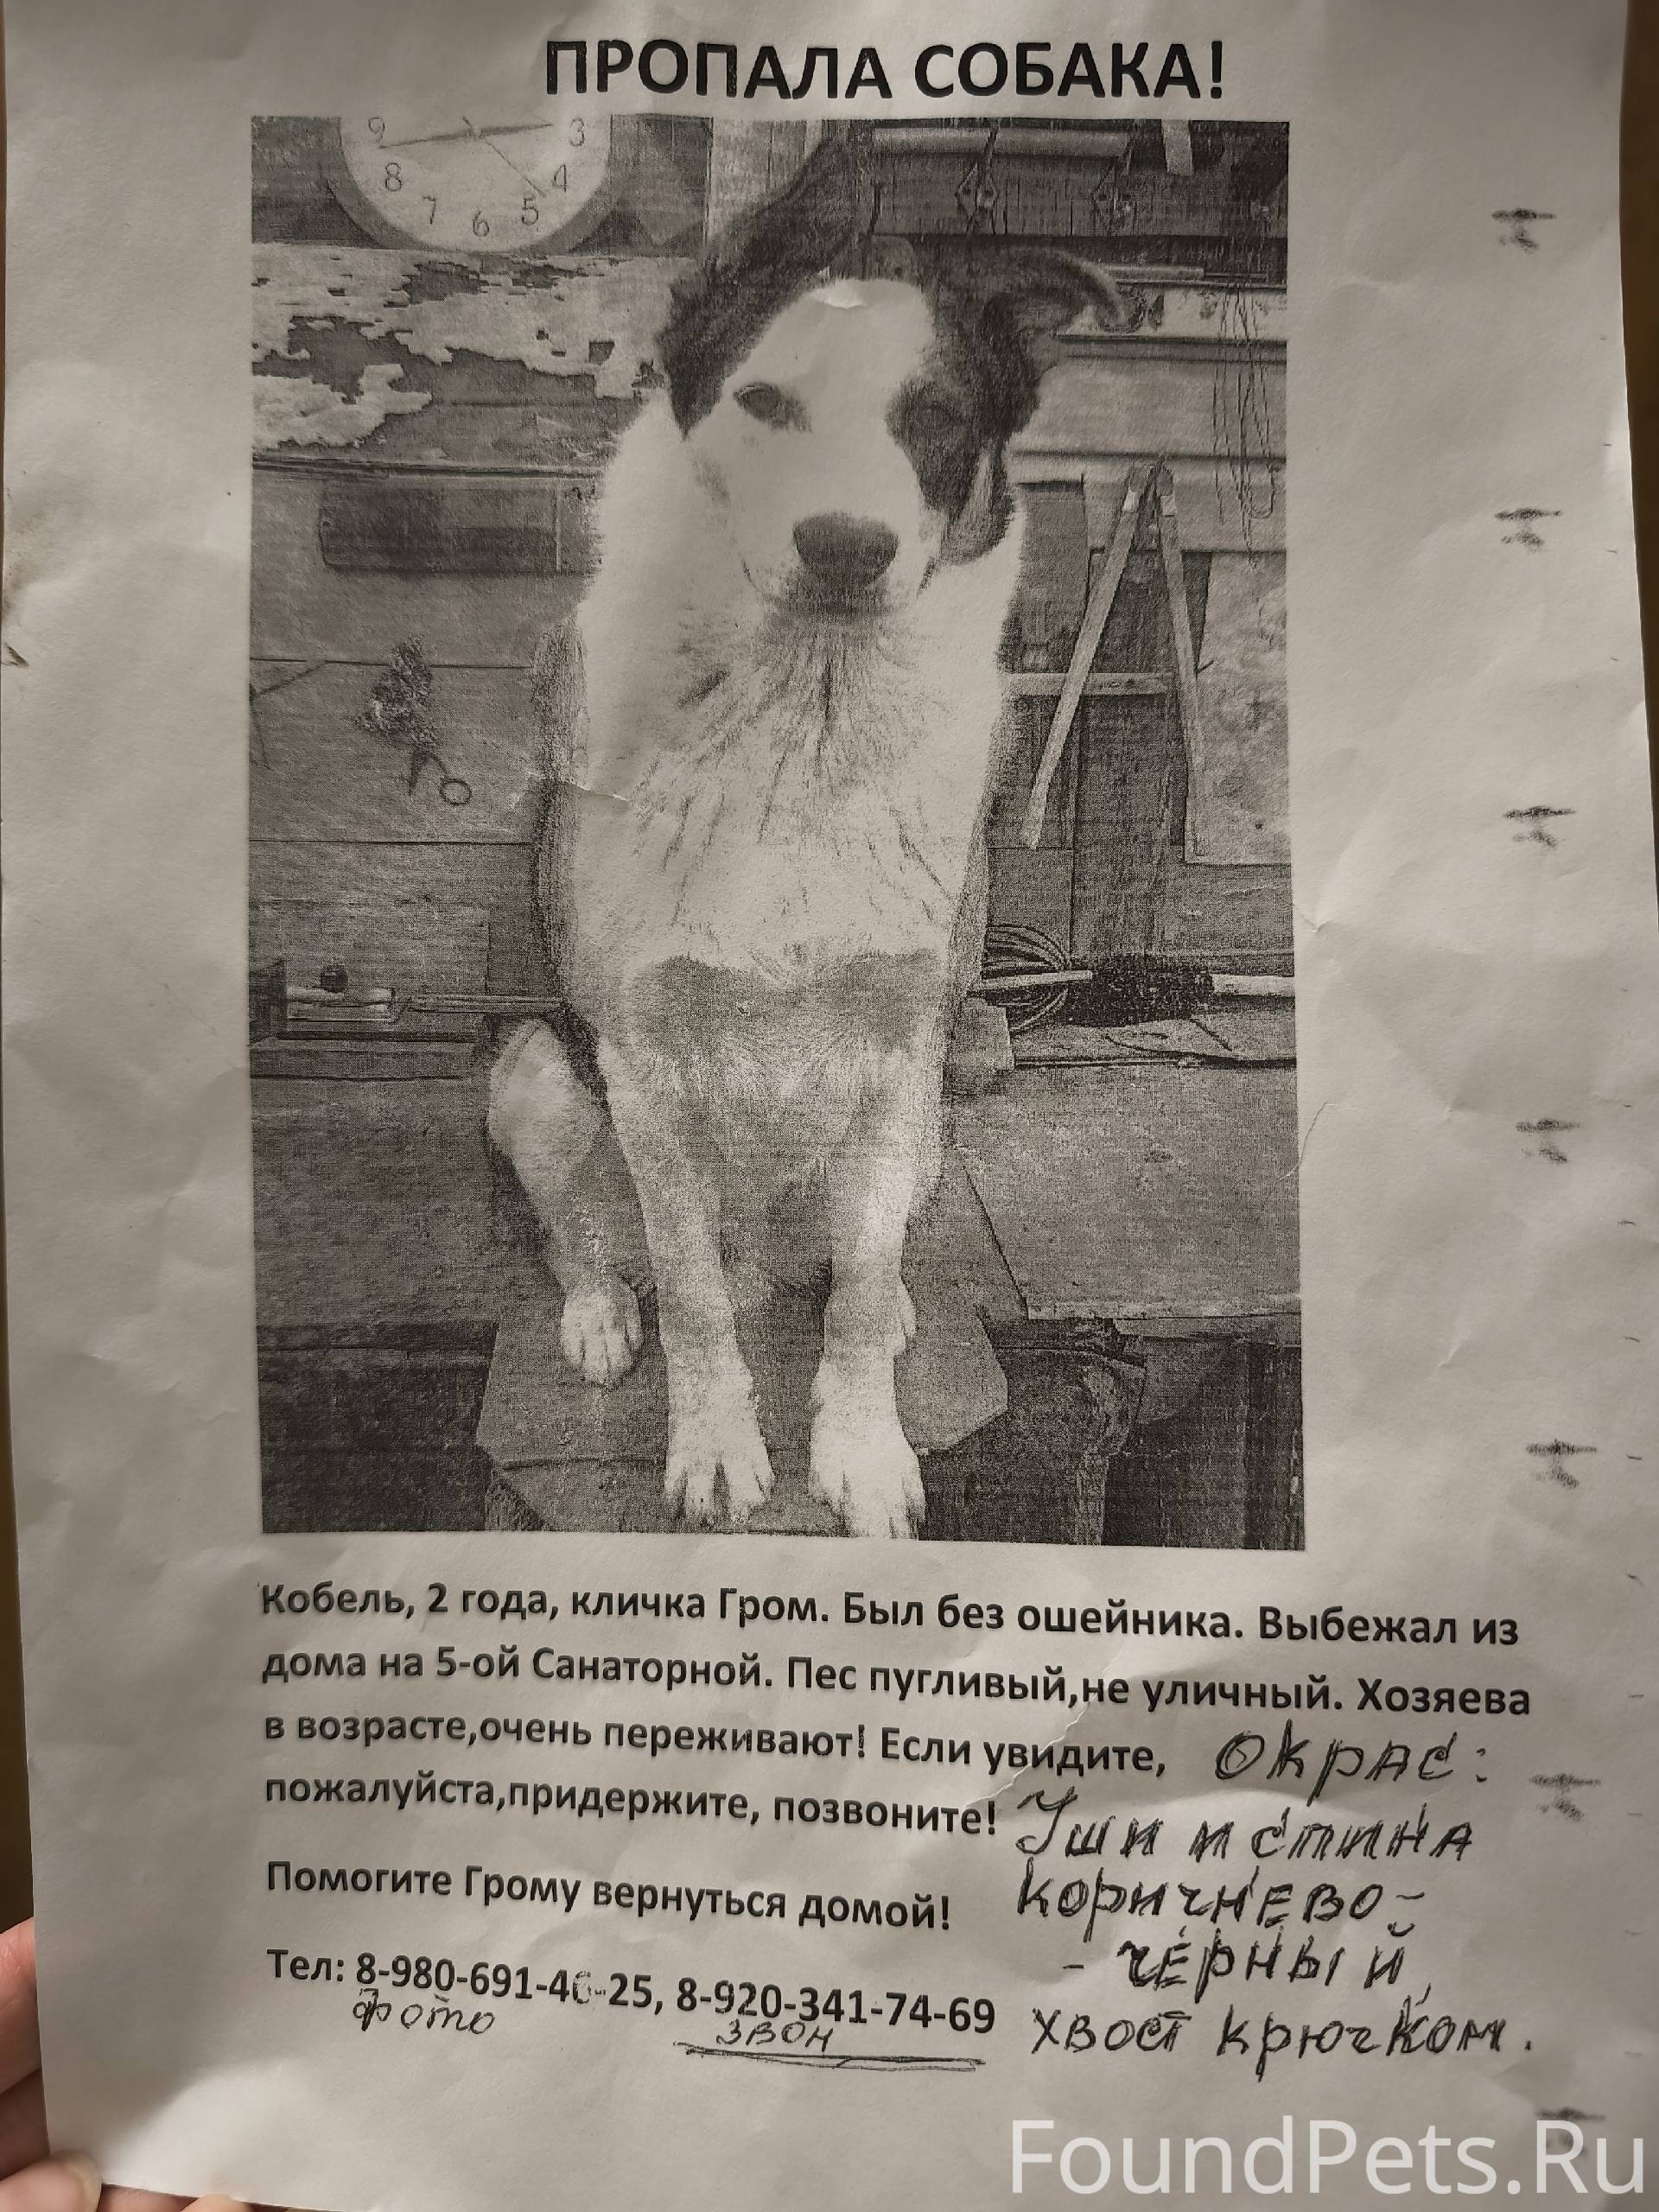 ПРОПАЛА СОБАКА!
9 3
8 4
7 6 5
Кобель, 2 года, кличка Гром. Был без ошейника. Выбежал из
дома на 5-ой Санаторной. Пес пугливый,не уличный. Хозяева
в возрасте,очень переживают! Если увидите,
пожалуйста,придержите, позвоните!
Помогите Грому вернуться домой!
Тел: 8-980-691-46-25, 8-920-341-74-69
фото звон
Окрас:
Уши и спина
коричнево-
- чёрный,
хвост крючком.
FoundPets.Ru